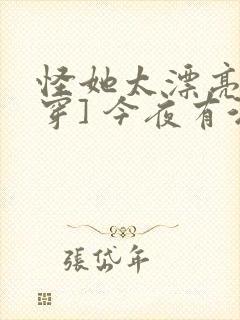 怪她太漂亮
穿]今夜有
張岱年